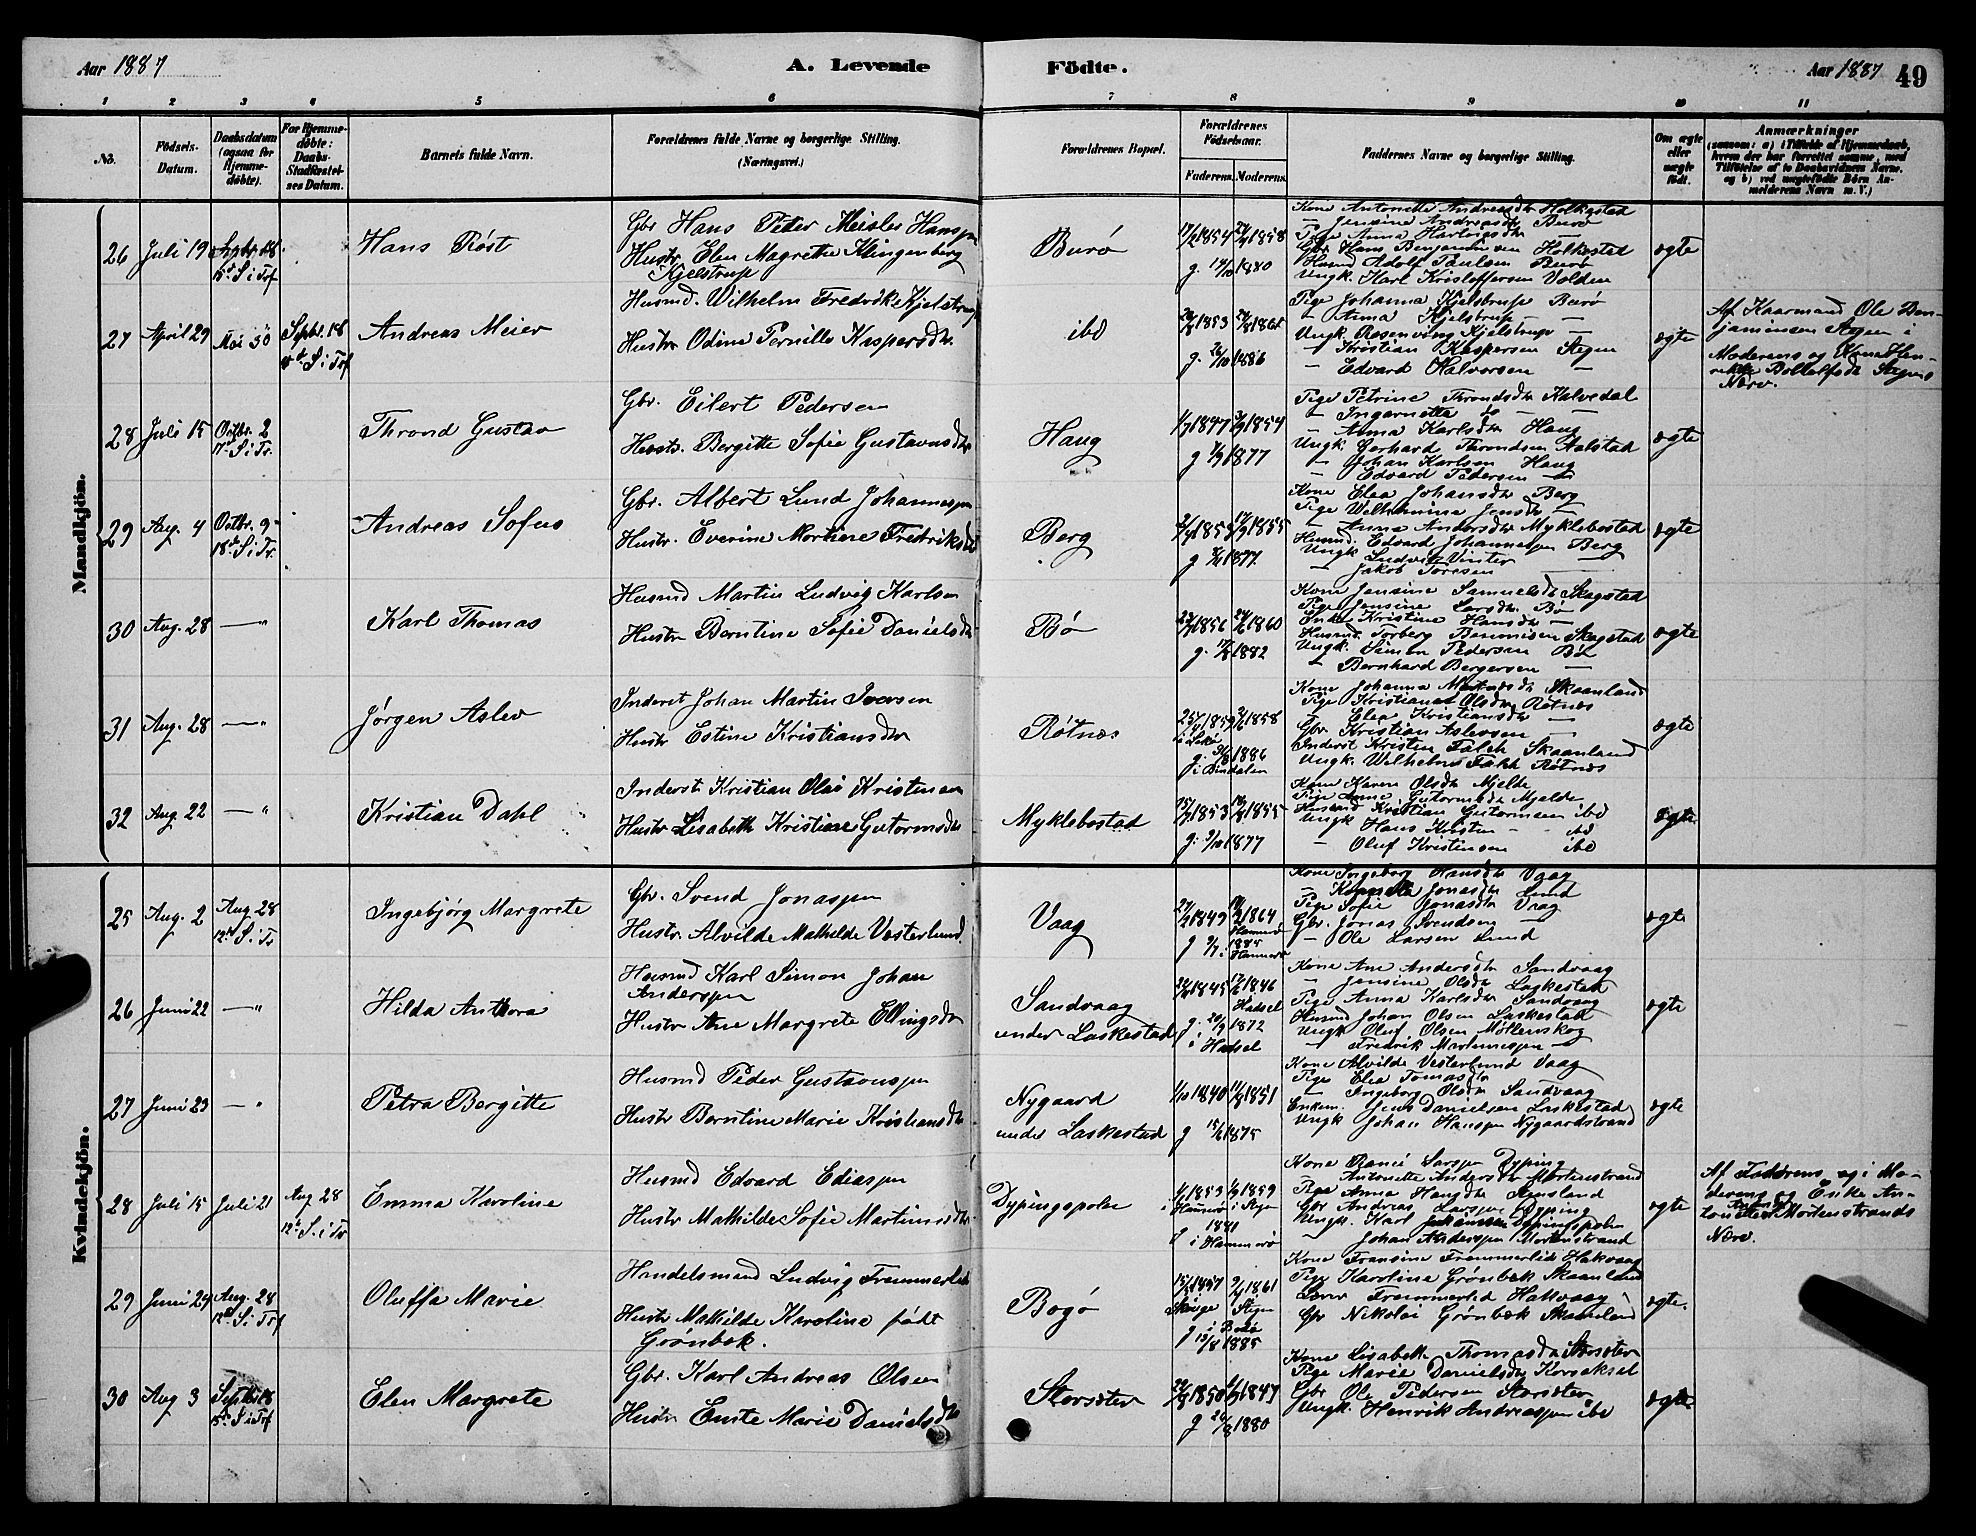 Aar 1887
A. Levende
Födte.
Aar 1887 49
1 2 3 4 5 6 7 8 9 10 11
No.
Födsels-
Datum.
Daabsdatum
(ogsaa for
Hjemme-
döbte).
For Hjemme-
döbte:
Daabs-
Stadfæstel-
ses Datum.
Barnets fulde Navn.
Forældrenes fulde Navne og borgerlige Stilling.
(Næringsvei.)
Forældrenes Bopæl.
Forældrenes
Födselsaar.
Faderens. Moderens.
Faddernes Navne og borgerlige Stilling.
Om ægte
eller
uægte
födt.
Anmærkninger
(saasom: a) i Tilfælde af Hjemmedaab,
hvem der har forrettet samme, med
Tilföielse af to Daabsvidners Navne,
og b) ved uægtefödte Börn An-
melderens Navn m. V.)
Mandkjön.
26 Juli 19 Septbr. 18 Hans Røst
15d S. i Trf
Gbr Hans Peder Meisler Hanssen
Hustr Elen Magrethe Klingenberg
Kjelstrup
Burø
17/2 1854 1858
g. 1880
Kone Antonette Andreasdtr Holkestad
— Jensine Andreasdtr Burø
Pige Anna Hartvigsdtr —
Gbr Hans Benjaminsen Holkestad
Husmd Adolf Paulsen Burø
Ungk. Karl Kristoffersen Volden
ægte
27 April 29 Mai 30 Septbr. 18 Andreas Meier
15d S i Trf
Husmd. Wilhelm Fredrik Kjelstrup
Hustr Odine Pernille Kaspersdtr
ibd
1853 1865
g. 1886
Pige Johanna Kjelstrup Burø
— Anna Kjelstrup —
Ungk Rosenving Kjelstrup —
— Kristian Kaspersen Stegen
— Edvard Halvorsen —
ægte
Af Kaarmand Ole Ben-
jaminsen Stegen i
Moderens og Kone Hen-
rikke Bottolfsdtr Stegens
Nærv.
28 Juli 15 Octbr. 2 Thrond Gustav
17d S i Tr.
Gbr. Eilert Pedersen
Hustr. Bergitte Sofie Gustavsdtr
Haug
1847 1854
g 1877
Pige Petrine Throndsdtr Kalvedal
— Ingarnette do —
— Anna Karlsdtr Haug
Ungk Gerhard Throndsen Aalstad
— Johan Karlsen Haug
— Edvard Pedersen —
ægte
29 Aug. 4 Octbr. 9 Andreas Sofus
18d S i Tr.
Gbr. Albert Lund Johannessen
Hustr. Everine Martine Fredriksdtr
Berg
1853 1855
g 1877.
Kone Elea Johansdtr Berg
Pige Wilhelmina Jensdtr —
— Anna Andersdtr Myklebostad
Husmd. Edvard Johannessen Berg
Ungk Ludvik Vinter —
— Jakob Toresen —
ægte
30 Aug. 28 — " Karl Thomas
Husmd Martin Ludvig Karlsen
Hustr Berntine Sofie Danielsdtr
Bø
1856 1860
g. 1882
Kone Jensine Samuelsdtr Skagstad
Pige Jensine Larsdtr Bø
Kristine Hansdtr —
Husmd. Torberg Skagstad
Ungk. Simon Pedersen Bø
— Bernhard Bergersen —
ægte
31 Aug. 28 — " Jørgen Aslev
Inderst Johan Martin Iversen
Hustr Estine Kristiansdtr
Røtnes
1859 1858
g. 1886
i Bindalen
Kone Johanna Skaanland
Pige Kristiane Olsdtr Røtnes
— Elea Kristiansdtr —
Gbr Kristian Aslevsen —
Inderst Kristen Falch Skaanland
Ungk. Wilhelm Falch Røtnes
ægte
32 Aug. 22 — " Kristian Dahl
Inderst Kristian Olai Kristensen
Hustr Lisabeth Kristiane Gutormsdtr
Myklebostad
1853 1855
g. 1877
Kone Karen Olsdtr Mjelde
Pige Anne Gutormsdtr Mjelde
Husmd Kristian Gutormsen ibd
Ungk Hans Kristen — ibd
— Oluf Kristensen ibd
ægte
Kvindekjön.
25 Aug. 2 Aug. 28 Ingebjørg Margrete
12d S i Tr
Gbr. Svend Jonassen
Hustr. Alvilde Mathilde Vesterlund
Vaag
1849 1864
g 1885
Hammerø
Kone Ingeborg Hansdtr Vaag
— Jonasdtr Lund
Pige Sofie Jonasdtr Vaag
Gbr. Jonas Svendsen —
— Ole Larsen Lund
ægte
26 Juni 22 — " Hilda Anthora
Husmd Karl Simon Johan
Anderssen
Hustr Ane Margrete Ellingsdtr
Sandvaag
under Laskestad
1845 1846
Hadsel
g. 20/9 1872
i Hadsel
Kone Ane Andersdtr Sandvaag
— Jensine Olsdtr Laskestad
Pige Anna Karlsdtr Sandvaag
Husmd Johan Olsen Laskestad
Ungk Oluf Olsen Møllenskog
— Fredrik Martinussen —
ægte
27 Juni 23 — " Petra Bergitte
Husmd Peder Gustavussen
Hustr Berntine Marie Kristiansdtr
Nygaard
under Laskestad
1/10 1840 1851
g 1875
Kone Alvilde Vesterlund Vaag
Pige Elea Tomasdtr
— Ingeborg Olsdtr Sandvaag
Enkem. Jens Danielsen Laskestad
Ungk Johan Hanssen Nygaardstrand
ægte
28 Juli 15 Juli 21 Aug 28 Emma Karoline
12d S. i Tr
Husmd Edvard Ediassen
Hustr Mathilde Sofie Martinusdtr
Dypingspolen
1853 1859
i Hammerø i Stegen
g 1881
i Hammerø
Kone Larssen Dyping
Antonette Andersdtr Mortenstrand
Pige Anna Hansdtr Stensland
Gbr Andreas Larssen Dyping
Ungk. Karl Johansen Dypingspolen
— Johan Anderssen Mortenstrand
ægte
Af Faderens og i Mo-
derens og Enke An-
tonette Mortenstrands
Nærv.
29 Juni 24 Aug. 28 Oluffa Marie
12d S. i Trf
Handelsmand Ludvig Fremmerlid
Hustr Mathilde Karoline født
Grønbek.
Bogø
1857 1861
Stegen
g i Bodø
1885
Kone Fransine Fremmerlid Hakvaag
Pige Karoline Grønbek Skaanland
Fremmerlid Hakvaag
Gbr Nikolai Grønbek Skaanland
ægte.
30 Aug 3 Septbr. 18 Elen Margrete
15d S i Trf
Gbr. Karl Andreas Olsen
Hustr Enste Marie Danielsdtr
Storsæter
1850 1847
g 1880
Kone Lisabeth Thomasdtr Storsæter
Pige Marie Danielsdtr Korsaksel
Gbr Ole Pedersen Storsæter
Ungk. Henrik Andreassen ibd
ægte